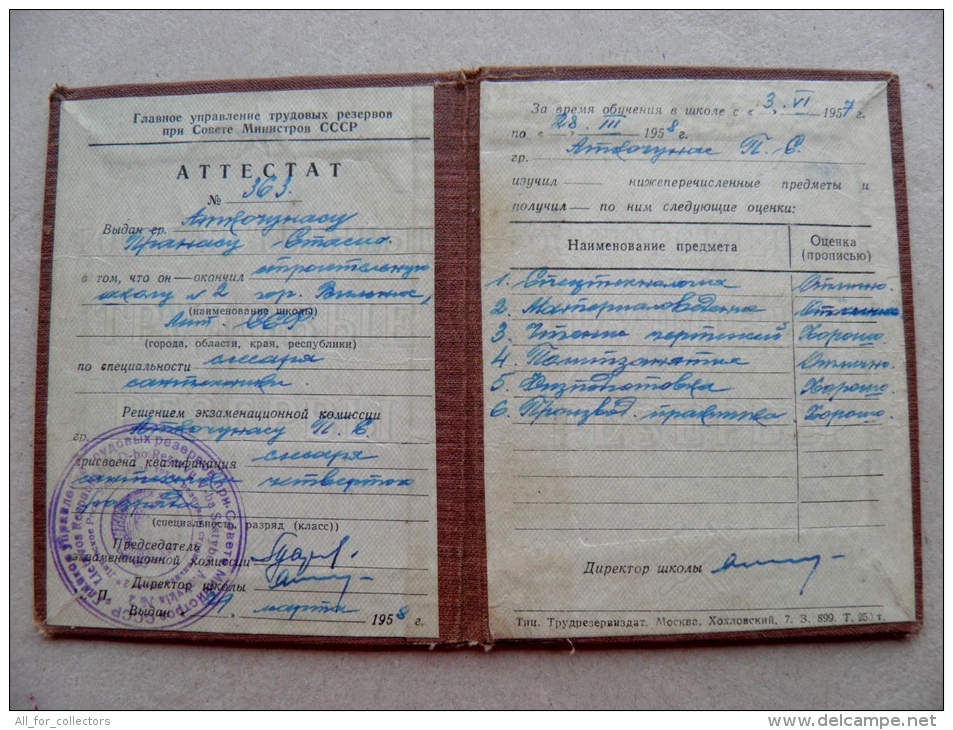 Главное управление трудовых резервов
при Совете Министров СССР
АТТЕСТАТ
№ 363.
Выдан гр. Аткочунасу
Пранасу Стасио.
в том, что он — окончил строительную
школу № 2 гор. Вильнюс,
(наименование школы)
Лит. ССР
(города, области, края, республики)
по специальности слесаря
сантехники
Решением экзаменационной комиссии
гр. Аткочунасу П. С.
присвоена квалификация слесаря
сантехники четвертого
разряда
(специальность, разряд (класс))
Председатель
экзаменационной комиссии
Директор школы
М. П.
Выдан марта 1958 г.
За время обучения в школе с « 3 » VI 1957 г.
по « 28 » III 1958 г.
гр. Аткочунас П. С.
изучил — нижеперечисленные предметы и
получил — по ним следующие оценки:
Наименование предмета
Оценка
(прописью)
1. Спецтехнология Отлично.
2. Материаловедение Отлично
3. Чтение чертежей Хорошо
4. Политзанятия Отлично.
5. Физподготовка Хорошо
6. Производ. практика Хорошо
Директор школы
Тип. Трудрезервиздат. Москва, Хохловский, 7. З. 899. Т. 250 т.
All_for_collectors
www.delcampe.net